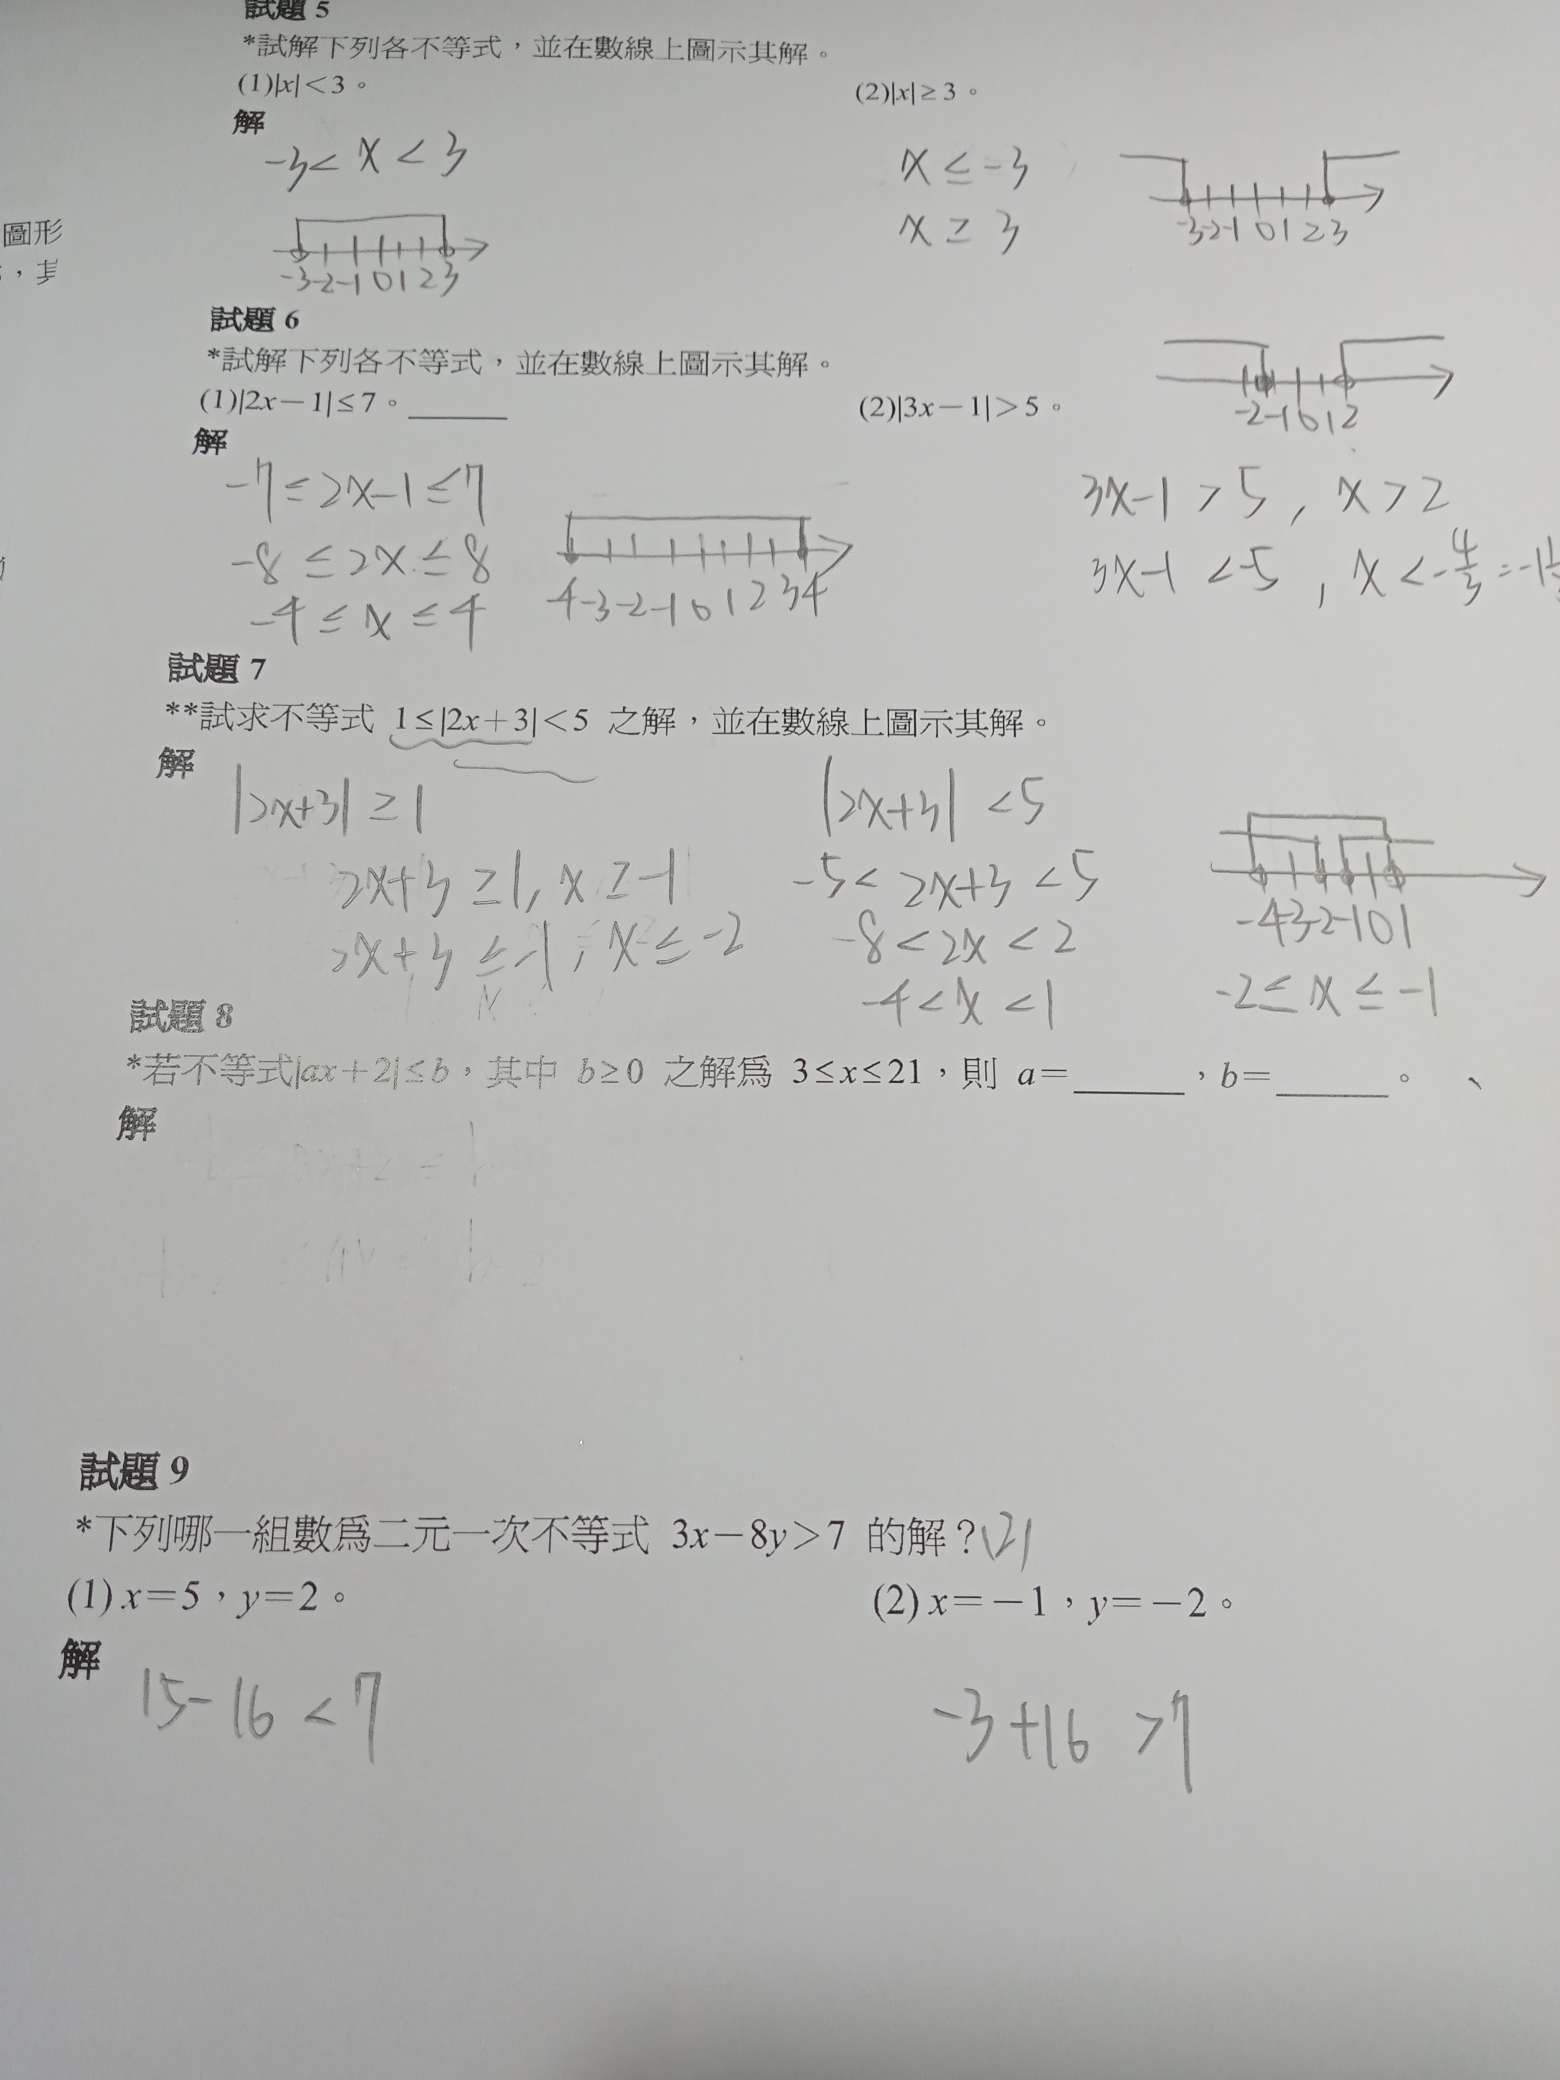 試題 5
*試解下列各不等式，並在數線上圖示其解。
(1)|x|<3。
(2)|x|≥3。
解
-3< x < 3
x ≤ -3
x ≥ 3
-3-2-1 0 1 2 3
-3-2-1 0 1 2 3
圖形
，其
試題 6
*試解下列各不等式，並在數線上圖示其解。
(1)|2x-1|≤7。
(2)|3x-1|>5。
-2-1 0 1 2
解
-7≤2x-1≤7
-8≤2x≤8
-4≤x≤4
-4-3-2-1 0 1 2 3 4
3x-1 > 5 , x > 2
3x-1 <-5 , x <-4/3 =-1
試題 7
**試求不等式 1≤|2x+3|<5 之解，並在數線上圖示其解。
解
|2x+3| ≥ 1
2x+3 ≥1, x ≥ -1
2x+3 ≤-1, x ≤ -2
|2x+3| <5
-5< 2x+3 <5
-8<2x < 2
-4<x <1
-4-3-2-1 0 1
-2≤ x ≤ -1
試題 8
*若不等式|ax+2|≤b，其中 b≥0 之解為 3≤x≤21，則 a= ，b= 。
解
試題 9
*下列哪一組數為二元一次不等式 3x-8y>7 的解？(2)
(1) x=5，y=2。
(2) x=-1，y=-2。
解
15-16 < 7
-3+16 >7